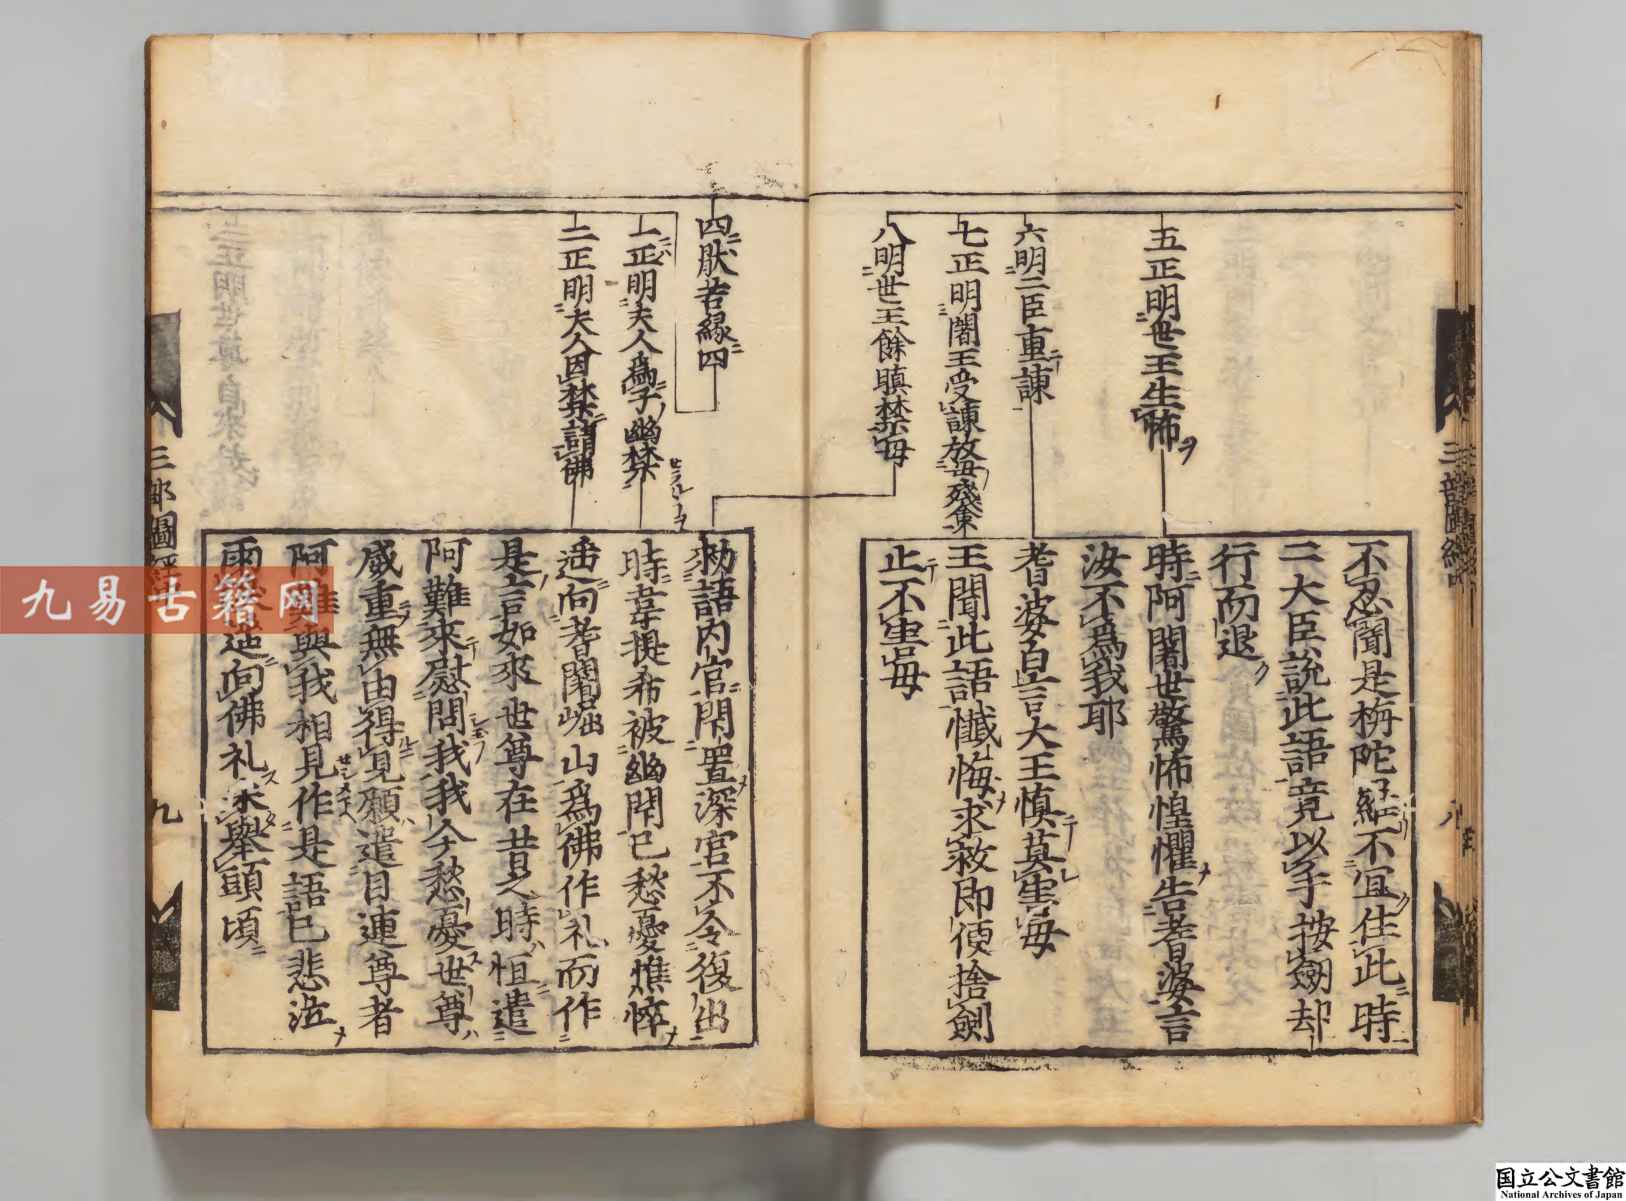 五正明世王生怖
六明二臣重諌
七正明闍王受諌放母殘命
八明世王餘瞋禁母
不忍聞是栴陀羅不宜住此時
二大臣說此語竟以手按劔却
行而退
時阿闍世驚怖惶懼告耆婆言
汝不為我耶
耆婆白言大王慎莫害母
王聞此語懴悔求救即便捨劔
止不害母
四厭苦縁四
一正明夫人為子幽禁
二正明夫人因禁請佛
勑語内官閇置深宮不令復出
時韋提希被幽閇已愁憂憔悴
遥向耆闍崛山為佛作礼而作
是言如來世尊在昔之時恒遣
阿難來慰問我我今愁憂世尊
威重無由得見願遣目連尊者
阿難與我相見作是語已悲泣
雨淚遥向佛礼未舉頭頃
三部圖經
九
九易古籍网
国立公文書館
National Archives of Japan